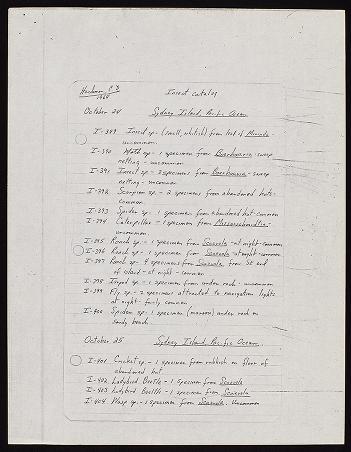 Hackman, C D
1964
Insect catalog
October 24 Sydney Island, Pacific Ocean
I-389 Insect sp. (small, whitish) from leaf of Morinda -
uncommon.
I-390 Moth sp - 1 specimen from Boerhavia - sweep
netting - uncommon
I-391 Insect sp - 3 specimens from Boerhavia - sweep
netting - uncommon
I-392 Scorpion sp. - 2 specimens from abandoned hut -
common
I-393 Spider sp. - 1 specimen from abandoned hut - common
I-394 Caterpillar - 1 specimen from Messerschmidtia -
uncommon
I-395 Roach sp - 1 specimen from Scaevola - at night - common
I-396 Roach sp - 1 specimen from Scaevola - at night - common
I-397 Roach sp - 4 specimens from Scaevola from SE end
of island - at night - common
I-398 Isopod sp. - 1 specimen from under rock - uncommon
I-399 Fly sp. - 2 specimens attracted to navigation lights
at night - fairly common
I-400 Spider sp - 1 specimen under rock on
sandy beach
October 25 Sydney Island, Pacific Ocean
I-401 Cricket sp. - 1 specimen from rubbish on floor of
abandoned hut
I-402 Ladybird Beetle - 1 specimen from Scaevola
I-403 Ladybird Beetle - 1 specimen from Scaevola
I-404 Wasp sp. - 1 specimen from Scaevola. Uncommon